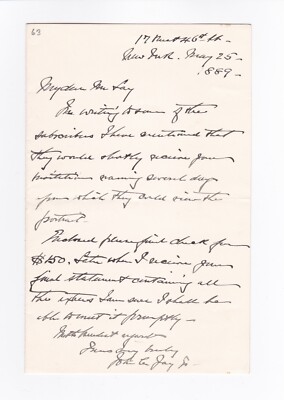 63
17 West 46th St.
New York. May 25 -
1889 -
My dear Mr Lay
In writing to some of the
subscribers I have mentioned that
they would shortly receive your
invitation naming several days
upon which they could view the
portrait.
Enclosed please find check for
$450. Later when I receive your
final statement containing all
the expenses I am sure I shall be
able to meet it promptly -
With kindest regards
Yours very truly
John